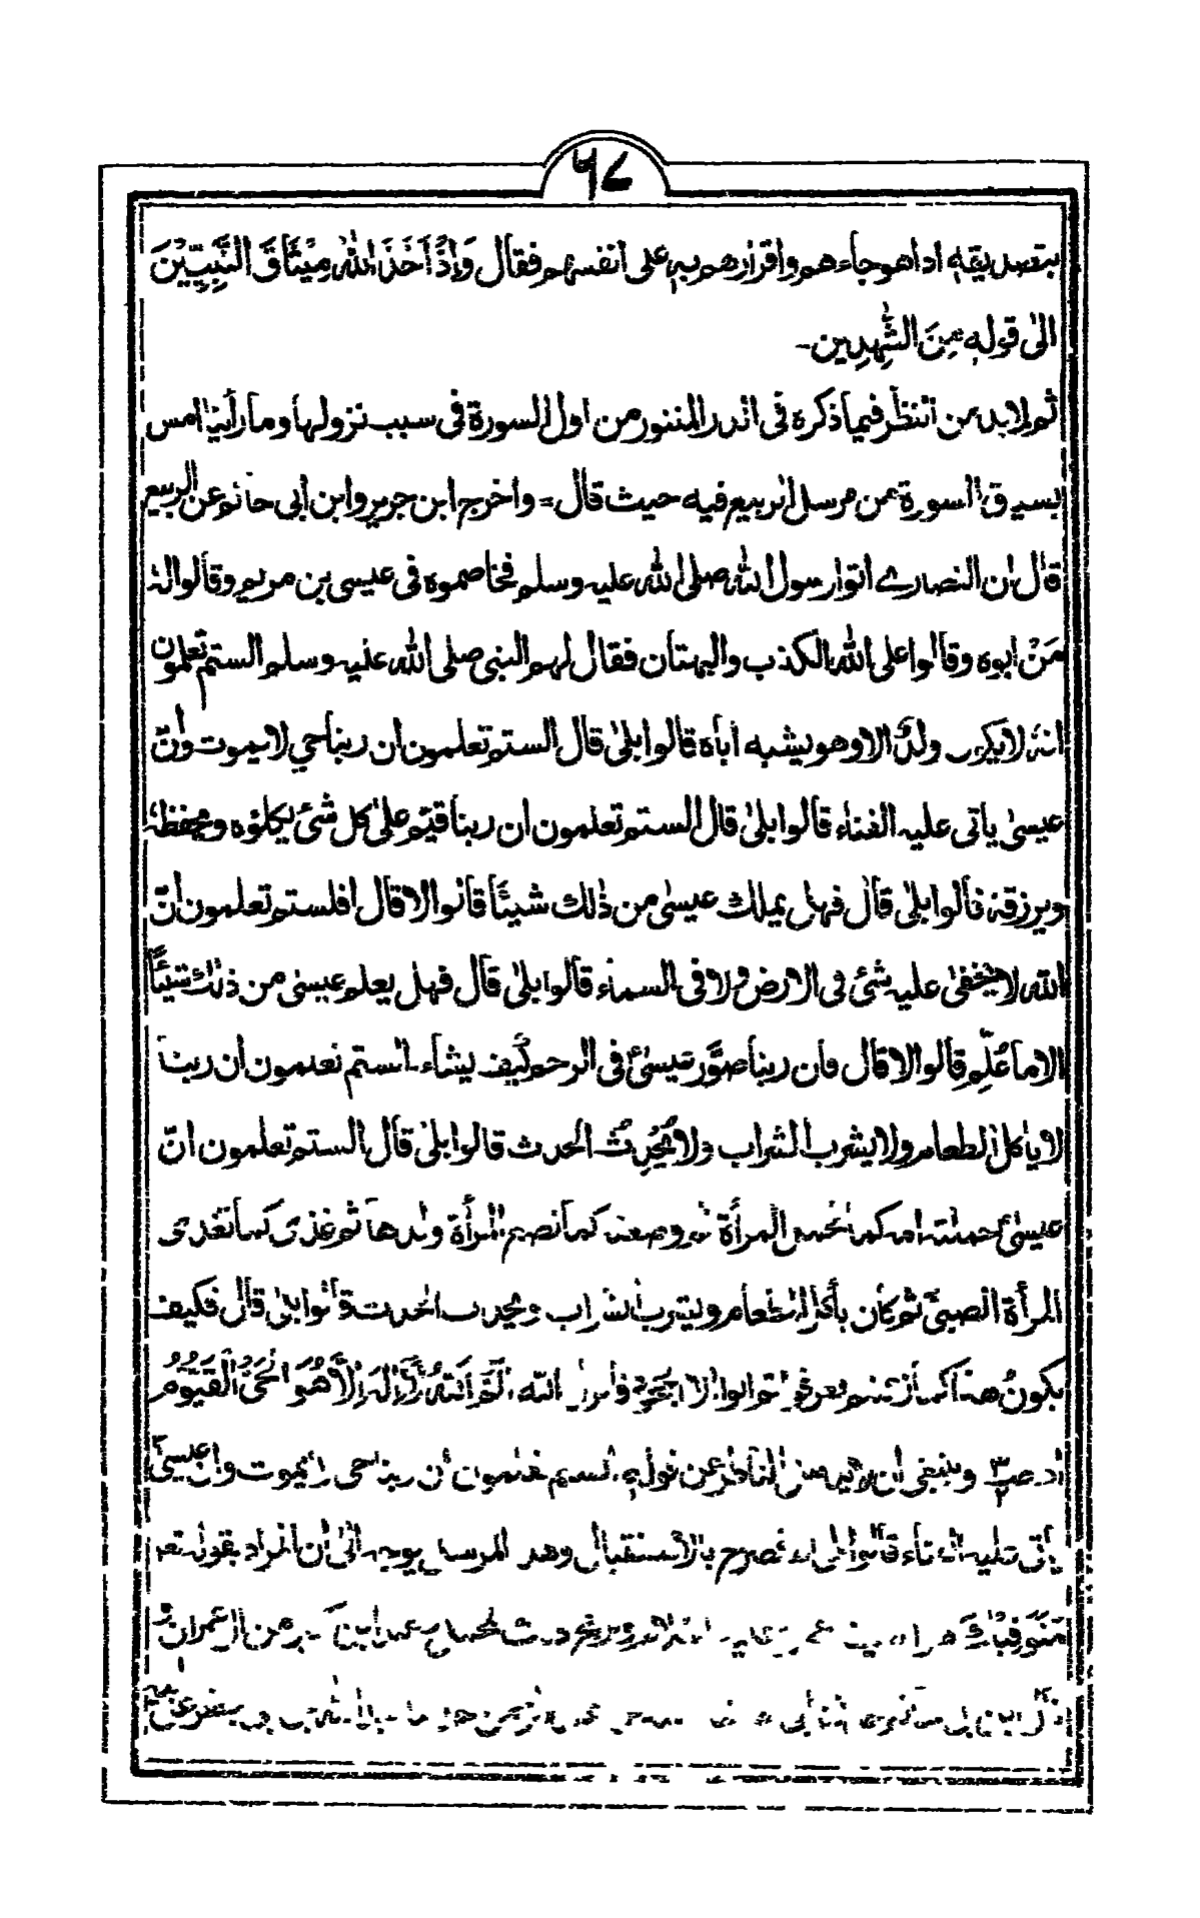 ٦٨
بتصديقه اذا هو جاءهم واقرارهم به على انفسهم فقال وَاِذْ اَخَذَ اللهُ مِيْثَاقَ النَّبِيّيْنَ
الىٰ قوله مِنَ الشّٰهِدِين-
ثم لا بد من النظر فيما ذكره فى الدر المنثور من اول السورة فى سبب نزولها وما رأينا امس
بسياق السورة من مرسل الربيع فيه حيث قال = واخرج ابن جرير وابن ابى حاتم عن الربيع
قال ان النصارے اتوا رسول الله صلى الله عليه وسلم فخاصموه فى عيسى بن مريم وقالوا لهٗ
مَنْ ابوه وقالوا على الله الكذب والبهتان فقال لهم النبى صلى الله عليه وسلم الستم تعلمون
انهٗ لا يكون ولدٌ الا وهو يشبه اباه قالوا بلىٰ قال الستم تعلمون ان ربنا حي لا يموت وانّ
عيسىٰ ياتى عليه الفناء قالوا بلىٰ قال الستم تعلمون ان ربنا قيّم علىٰ كل شئ يكلؤه ويحفظهٗ
ويرزقهٗ قالوا بلىٰ قال فهل يملك عيسىٰ من ذٰلك شيئًا قالوا لا قال افلستم تعلمون انّ
الله لا يخفىٰ عليه شئ فى الارض ولا فى السماء قالوا بلىٰ قال فهل يعلم عيسىٰ من ذٰلك شيئًا
الا ما عُلِّم قالوا لا قال فان ربنا صوَّر عيسىٰ فى الرحم كيف يشاء۔ الستم تعلمون ان ربنا
لا ياكل الطعام ولا يشرب الشراب ولا يُحْدِثُ الحدث قالوا بلىٰ قال الستم تعلمون انّ
عيسىٰ حملته امه كما تحمل المرأة ثم وضعته كما تضع المرأة ولدها ثم غذى كما تغذى
المرأة الصبىّ ثم كان ياكل الطعام ويشرب الشراب ويحدث الحدث قالوا بلىٰ قال فكيف
يكونُ هذا كما زعمتم فعرفوا ثم ابوا الا جحودا فانزل الله الٓمّٓ اَللهُ لَآ اِلٰهَ اِلَّا هُوَ الْحَىُّ الْقَيُّوْمُ
وينبغى ان الناظر عن قوله الستم تعلمون ان ربنا حى لا يموت وان عيسىٰ
ياتى عليه الفناء قالوا بلى انه تصريح بالاستقبال وهذ المرسل يوجه الىٰ ان المراد بقوله تعـ
مُتَوَفِّيْكَ من اٰل عمران